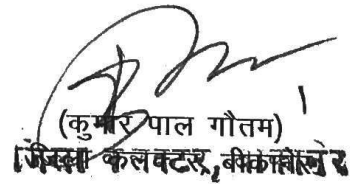 (कुमार पाल गौतम)
जिला कलक्टर, बीकानेर